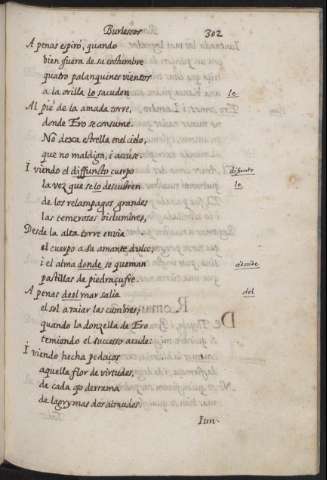 Burlescos 302
Apenas espiró, quando
bien fuera de su costumbre
quatro palanquines vientos
a la orilla lo sacuden le
Al pie de la amada torre,
donde Ero se consume.
No dexa estrella en el cielo,
que no maldiga, i acuse.
I viendo el diffuncto cuerpo difunto
la vez que se lo descubren le
de los relampagos grandes
las temerosas vislumbres,
Desde la alta torre envia
el cuerpo a su amante dulce,
i el alma donde se queman adonde
pastillas de piedraçufre.
Apenas desl mar salia del
el sol a raiar las cumbres,
quando la donzella de Ero
temiendo el successo acude:
I viendo hecha pedaços
aquella flor de virtudes,
de cada ojo derrama
de lagrymas dos almudes.
Iun-